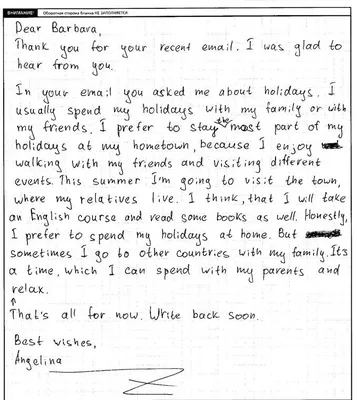 ВНИМАНИЕ! Оборотная сторона бланка НЕ ЗАПОЛНЯЕТСЯ
Dear Barbara,
Thank you for your recent email. I was glad to
hear from you.
In your email you asked me about holidays. I
usually spend my holidays with my family or with
my friends. I prefer to stay the most part of my
holidays at my hometown, because I enjoy
walking with my friends and visiting different
events. This summer I'm going to visit the town,
where my relatives live. I think, that I will take
an English course and read some books as well. Honestly,
I prefer to spend my holidays at home. But
sometimes I go to other countries with my family. It's
a time, which I can spend with my parents and
relax.
That's all for now. Write back soon.
Best wishes,
Angelina